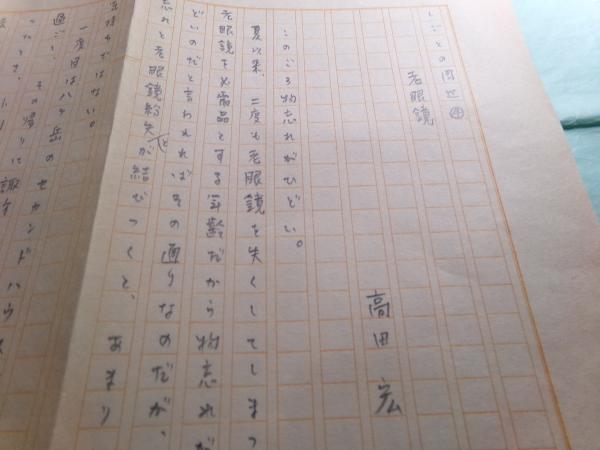 しごとの周辺㊉
老眼鏡
高田宏
このごろ物忘れがひどい。
夏以来、二度も老眼鏡を失くしてしまっ
老眼鏡を必需品とする年齢だから物忘れだ
どいのだと言われればその通りなのだが、
忘れと老眼鏡紛失とが結びつくと、あまり
気持ちではない。
一度目は八ヶ岳のセカンドハウス
過ごし、その帰りに諏